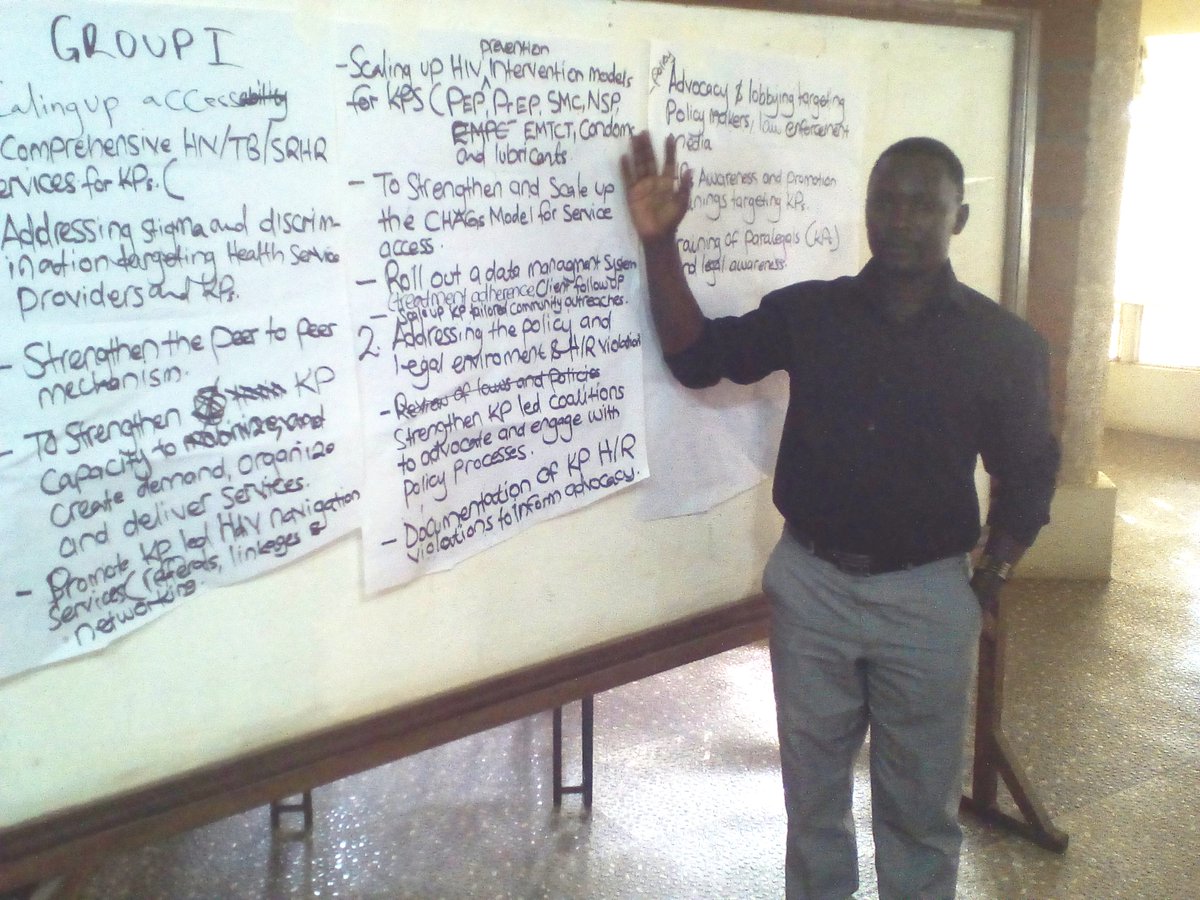 GROUP I
caling up access
Comprehensive HIV/TB/SRHR
ervices for KPs. (
Addressing stigma and discrim-
ination targeting Health Service
Providers and KPs.
- Strengthen the peer to peer
mechanism.
- To strengthen KP
capacity to mobilize, and
create demand, organize
and deliver services.
- Promote KP led HIV navigation
services (referals, linkages &
networking.
prevention
- Scaling up HIV ^ Intervention models
for KPS ( PEP, PrEP, SMC, NSP,
EMTCT, Condoms
and lubricants.
- To Strengthen and Scale up
the CHAGs Model for Service
access.
- Roll out a data managment System
(treatment adherence, Client follow up
- Scale up KP tailored community outreaches.
2. Addressing the policy and
legal enviroment & H/R violation
- Review of laws and Policies
Strengthen KP led coalitions
to advocate and engage with
policy processes.
- Documentation of KP H/R
violations to inform advocacy.
Advocacy & lobbying targeting
Policy makers, law enforcement
media
Awareness and promotion
nings targeting KPs.
raining of paralegals (KPs)
nd legal awareness.